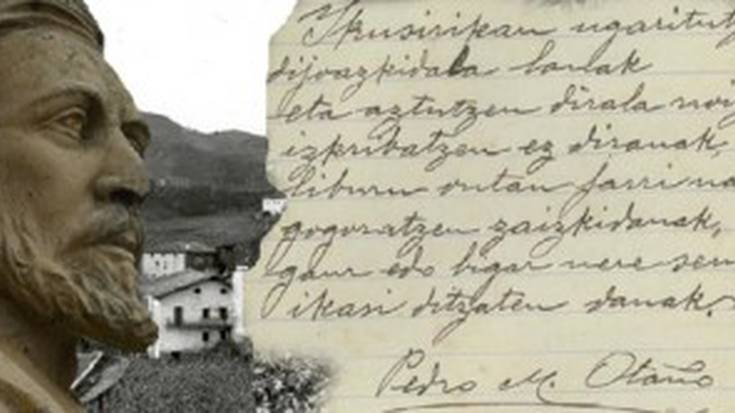 Ikusirikan ugaritut
dijoazkidala lanak
eta aztutzen dirala noiz
izkribatzen ez diranak,
liburu ontan jarri na
gogoratzen zaizkidanak,
gaur edo bigar nere sem
ikasi ditzaten danak.
Pedro M. Otaño